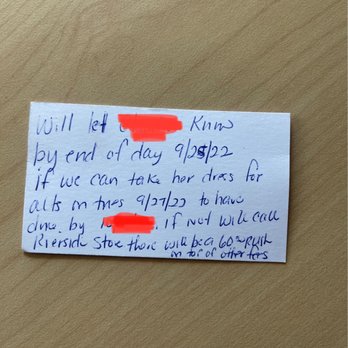 Will let Know
by end of day 9/25/22
if we can take her dress for
alts on tues 9/27/22 to have
done by . if not will call
Riverside Stoe there will be a 60 rush
on top of other fees